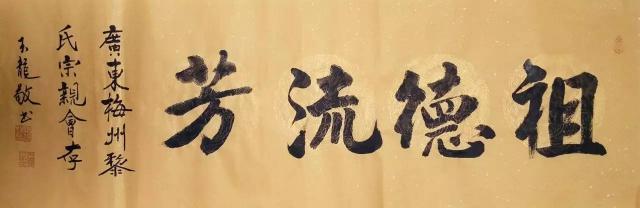 祖德流芳
廣東梅州黎
氏宗親會存
玉龍敬书